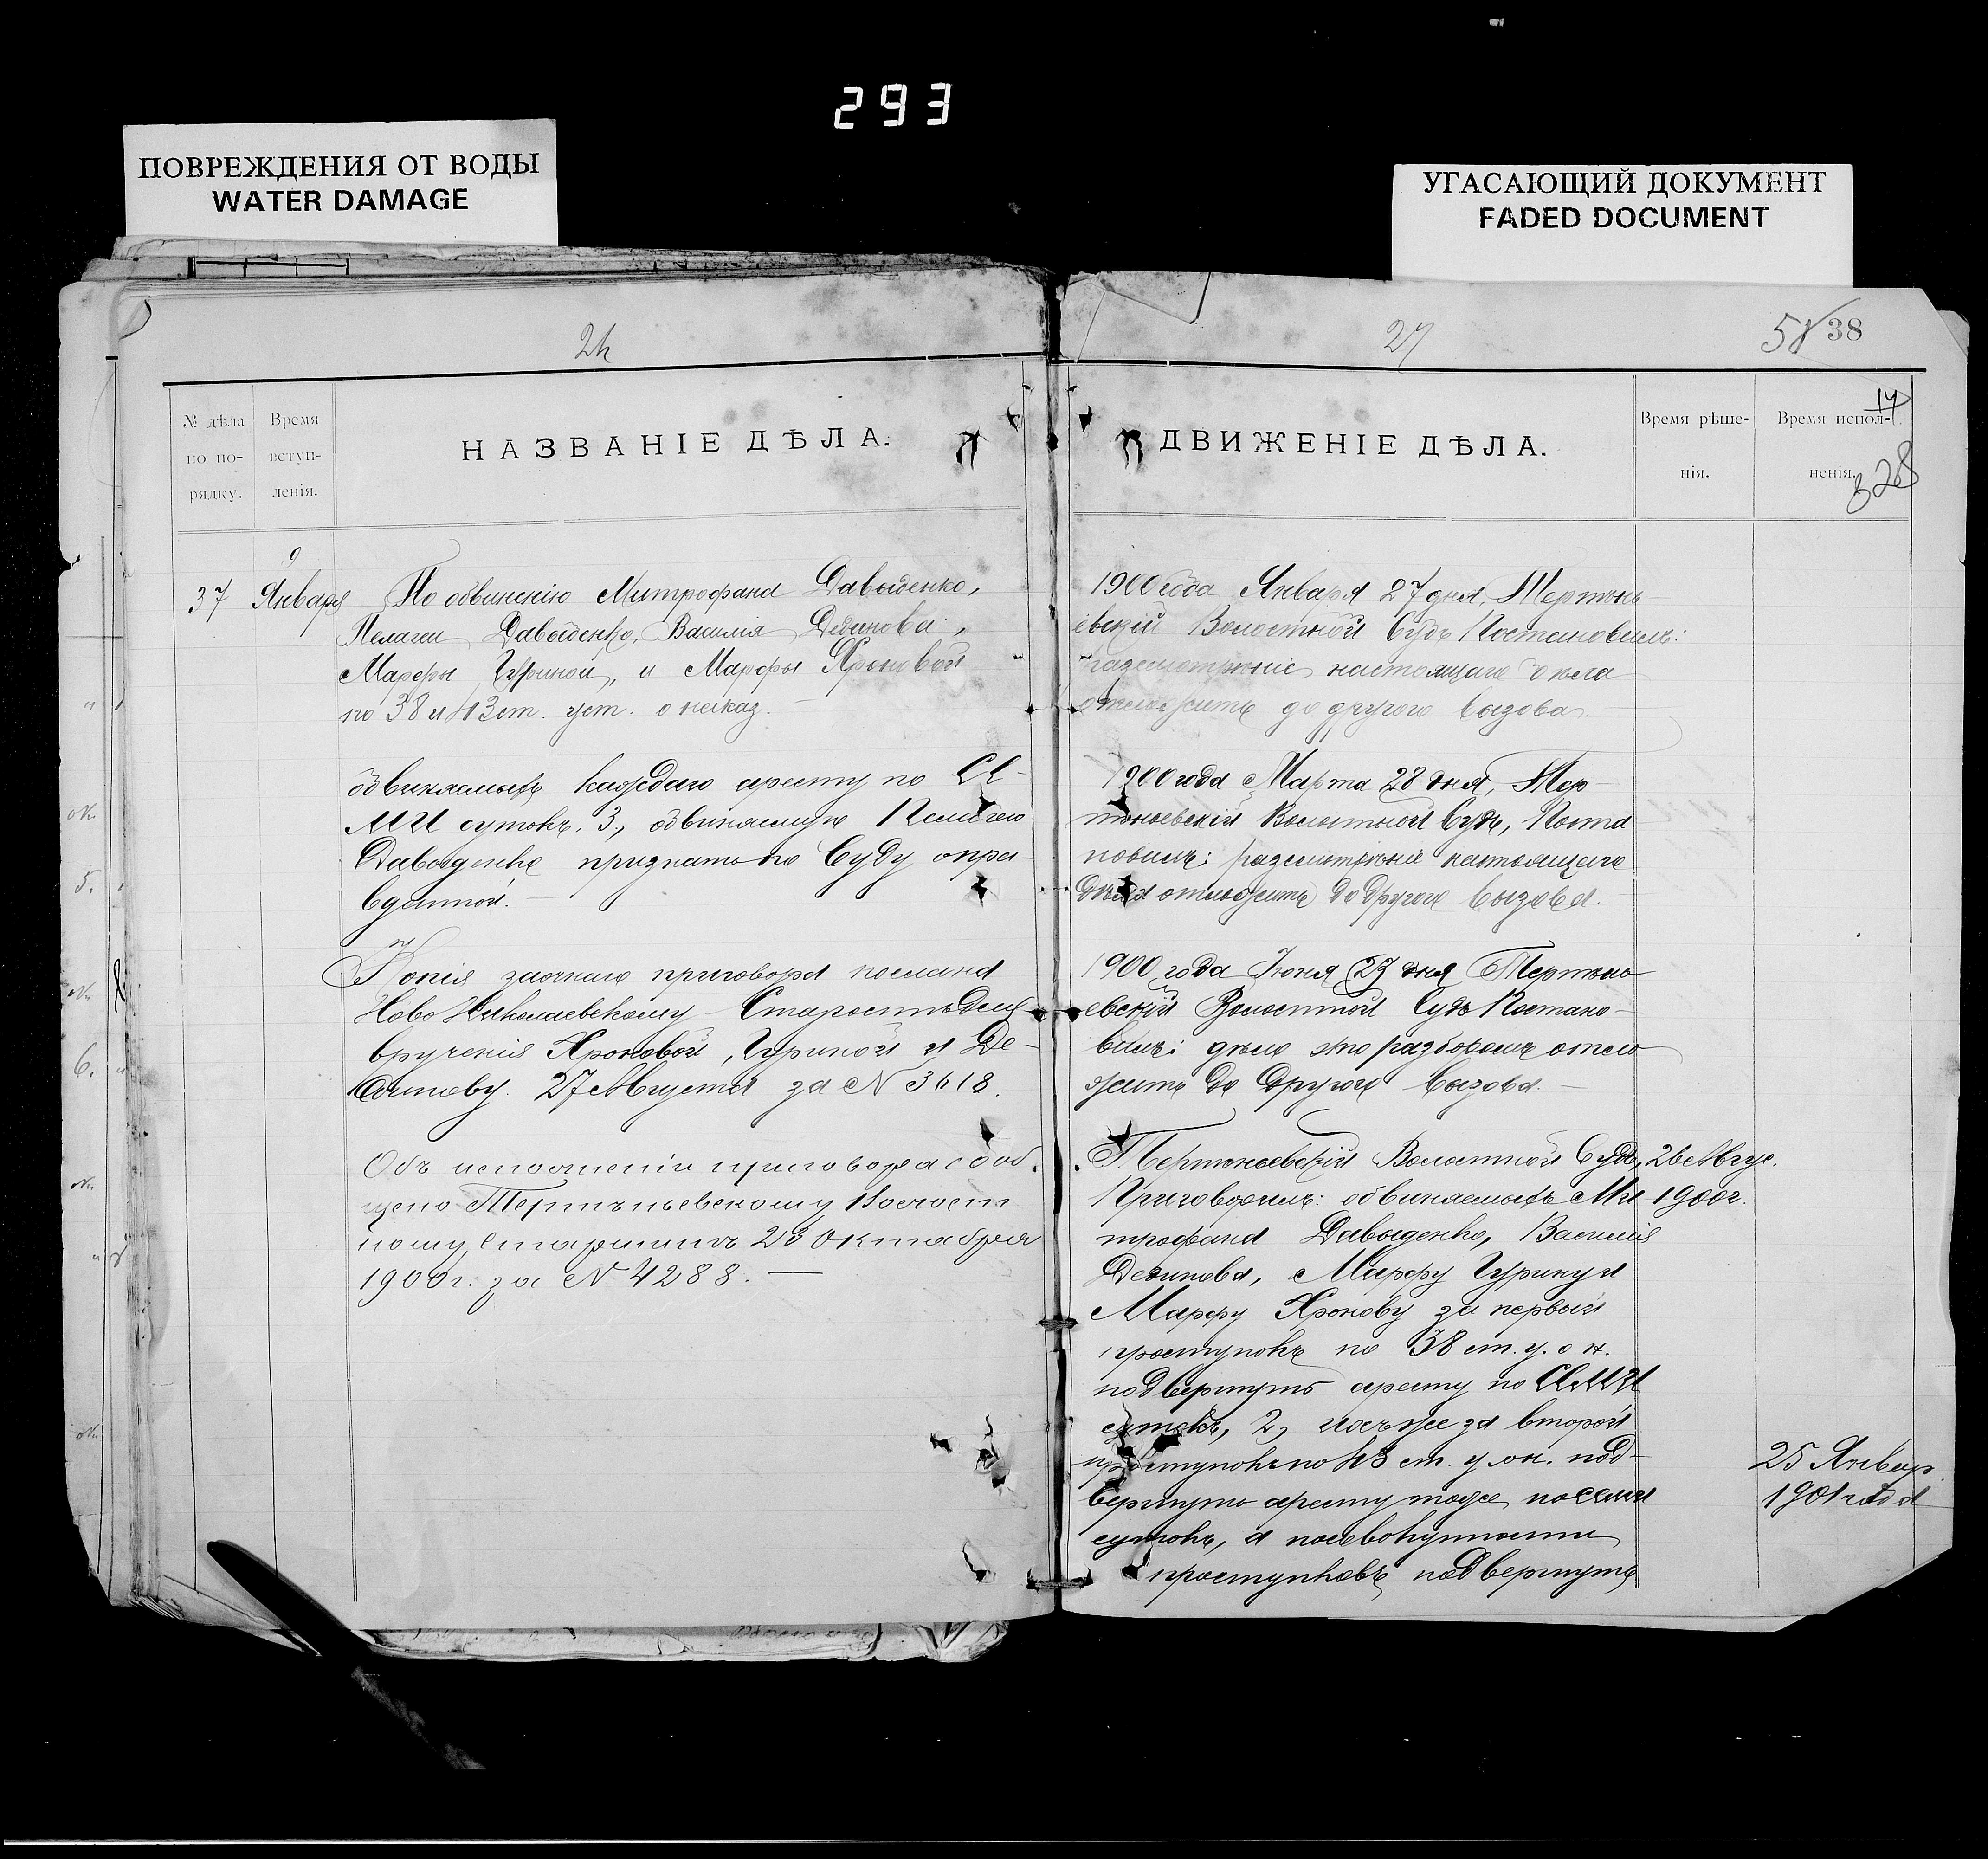 293
ПОВРЕЖДЕНИЯ ОТ ВОДЫ
WATER DAMAGE
УГАСАЮЩИЙ ДОКУМЕНТ
FADED DOCUMENT
27
38
№ дѣла
по по-
рядку.
Время
вступ-
ленія.
НАЗВАНІЕ ДѢЛА.
9
37 Января По обвиненію Митрофана Давыденко,
Пелагеи Давыденко, Василія
Марфы Цуриной, и Марфы Хроновой
по 38 и 43 ст. уст. о наказ.
обвиняемыхъ каждаго аресту по СЕ-
МИ сутокъ. 3, обвиняемую Пелагею
Давыденко признать по Суду опра-
вданной.
Копія заочнаго приговора послана
Ново Николаевскому Старостѣ для
врученія Хроновой, Цуриной и Де-
27 Августа за № 3618.
Объ исполненіи приговора сооб-
щено Тертъньевскому Волост
ному Старшинѣ 23 Октября
1900 г. за № 4288.
ДВИЖЕНІЕ ДѢЛА.
Время рѣше-
нія.
Время испол-
ненія.
14
328
1900 года Января 27 дня, Тертънь
евскій Волостной Судъ Постановилъ:
разсмотрѣніе настоящаго дѣла
отложить до другого вызова.
1900 года Марта 28 дня, Тер-
тъньевскій Волостной Судъ, Поста
новилъ: разсмотрѣніе настоящаго
дѣла отложить до другого вызова.
1900 года Іюня 27 дня Тертънь
евскій Волостной Судъ Постано-
вилъ: дѣло это разборомъ отло
жить до другого вызова.
Тертъньевскій Волостной Судъ, 26 Авгус.
Приговорилъ: обвиняемыхъ Ми 1900 г.
трофана Давыденко, Василія
Марфу Цурину и
Марфу Хронову за первый
проступокъ по 38 ст. у. о н.
подвергнуть аресту по СЕМИ
сутокъ, 2, ихъ же за второй
проступокъ по 43 ст. у. о н. под-
вергнуть аресту тоже по семи
сутокъ, а по совокупности
проступковъ подвергнуть
25 Январ
1901 года